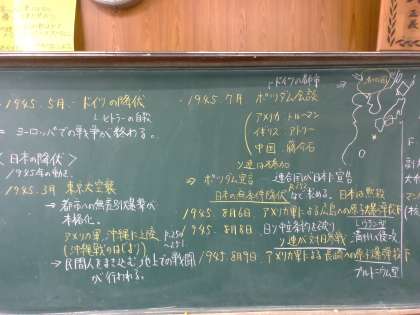 ・1945.5月.-ドイツの降伏
ヒトラーの自殺
= ヨーロッパでの戦争が終わる。
<日本の降伏>
1945年の動き
・1945.3月 東京大空襲
→都市への無差別爆撃が
本格化。
アメリカ軍、沖縄に上陸
(沖縄戦のはじまり)
→民間人をまきこむ、地上での戦闘
が行われる。
ドイツの都市
・1945.7月 ポツダム会談
アメリカ トルーマン
イギリス アトリー
中国 蒋介石
ソ連は
→ポツダム宣言 - 連合国が日本に
日本の無条件降伏などを求める。日本は黙殺
1945.8月6日.アメリカ軍による広島への原子爆弾投下
ウラン型
1945.8月8日.日ソ中立条約を破り
ソ連が対日参戦
満州に侵攻
1945.8月9日.アメリカ軍による長崎への原子爆弾投下
プルトニウム型